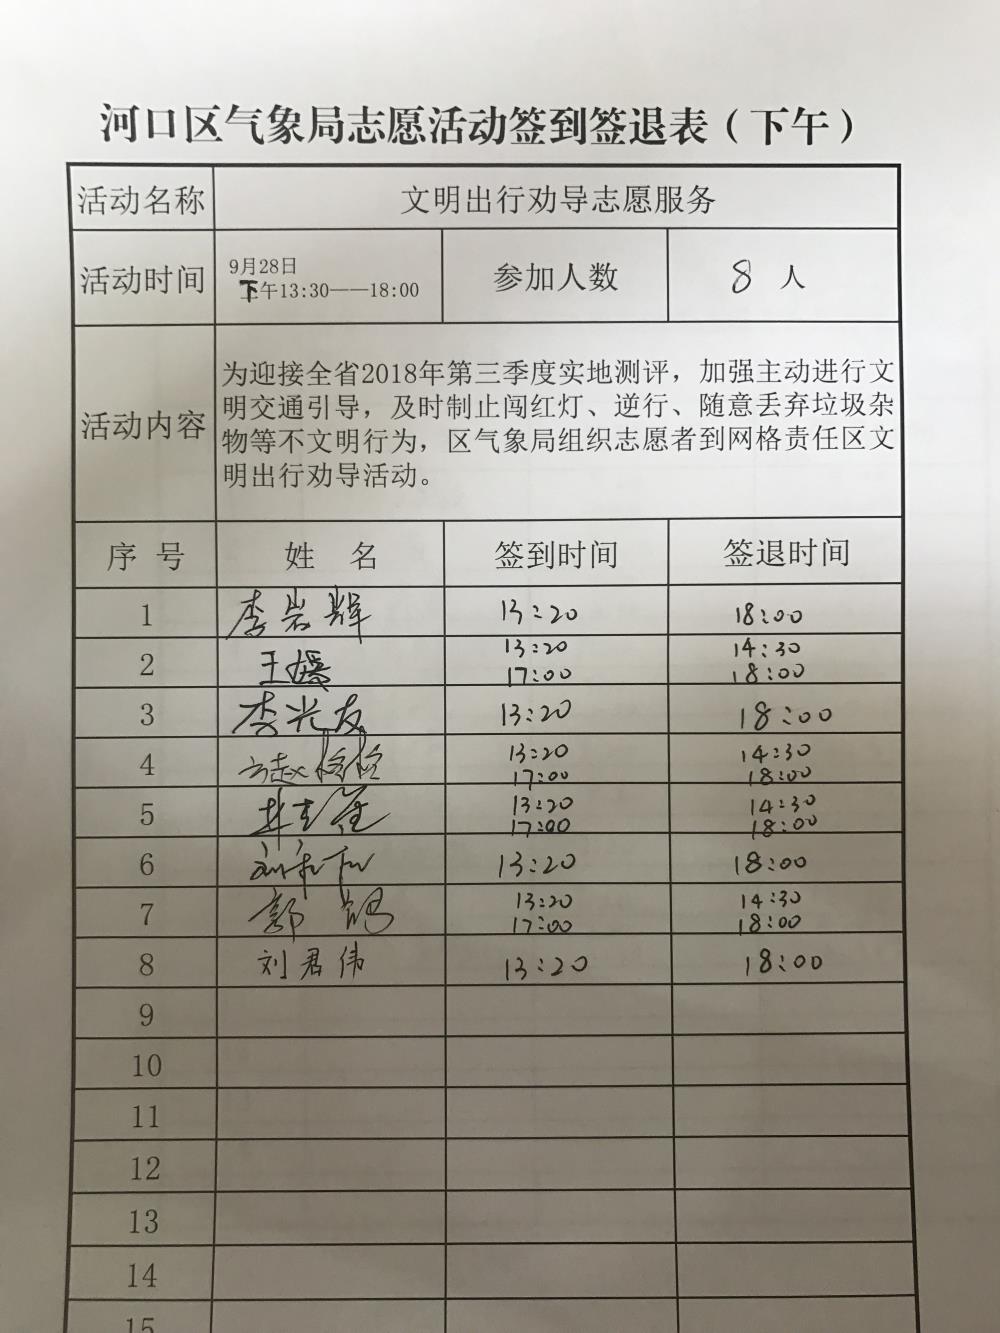 河口区气象局志愿活动签到签退表（下午）
活动名称 文明出行劝导志愿服务
活动时间 9月28日 参加人数 8 人
下午13:30——18:00
活动内容
为迎接全省2018年第三季度实地测评，加强主动进行文
明交通引导，及时制止闯红灯、逆行、随意丢弃垃圾杂
物等不文明行为，区气象局组织志愿者到网格责任区文
明出行劝导活动。
序 号 姓 名 签到时间 签退时间
1 李岩辉 13:20 18:00
2 王媛 13:20 14:30
17:00 18:00
3 李兴友 13:20 18:00
4 13:20 14:30
17:00 18:00
5 13:20 14:30
17:00 18:00
6 13:20 18:00
7 郭 13:20 14:30
17:00 18:00
8 刘君伟 13:20 18:00
9
10
11
12
13
14
15